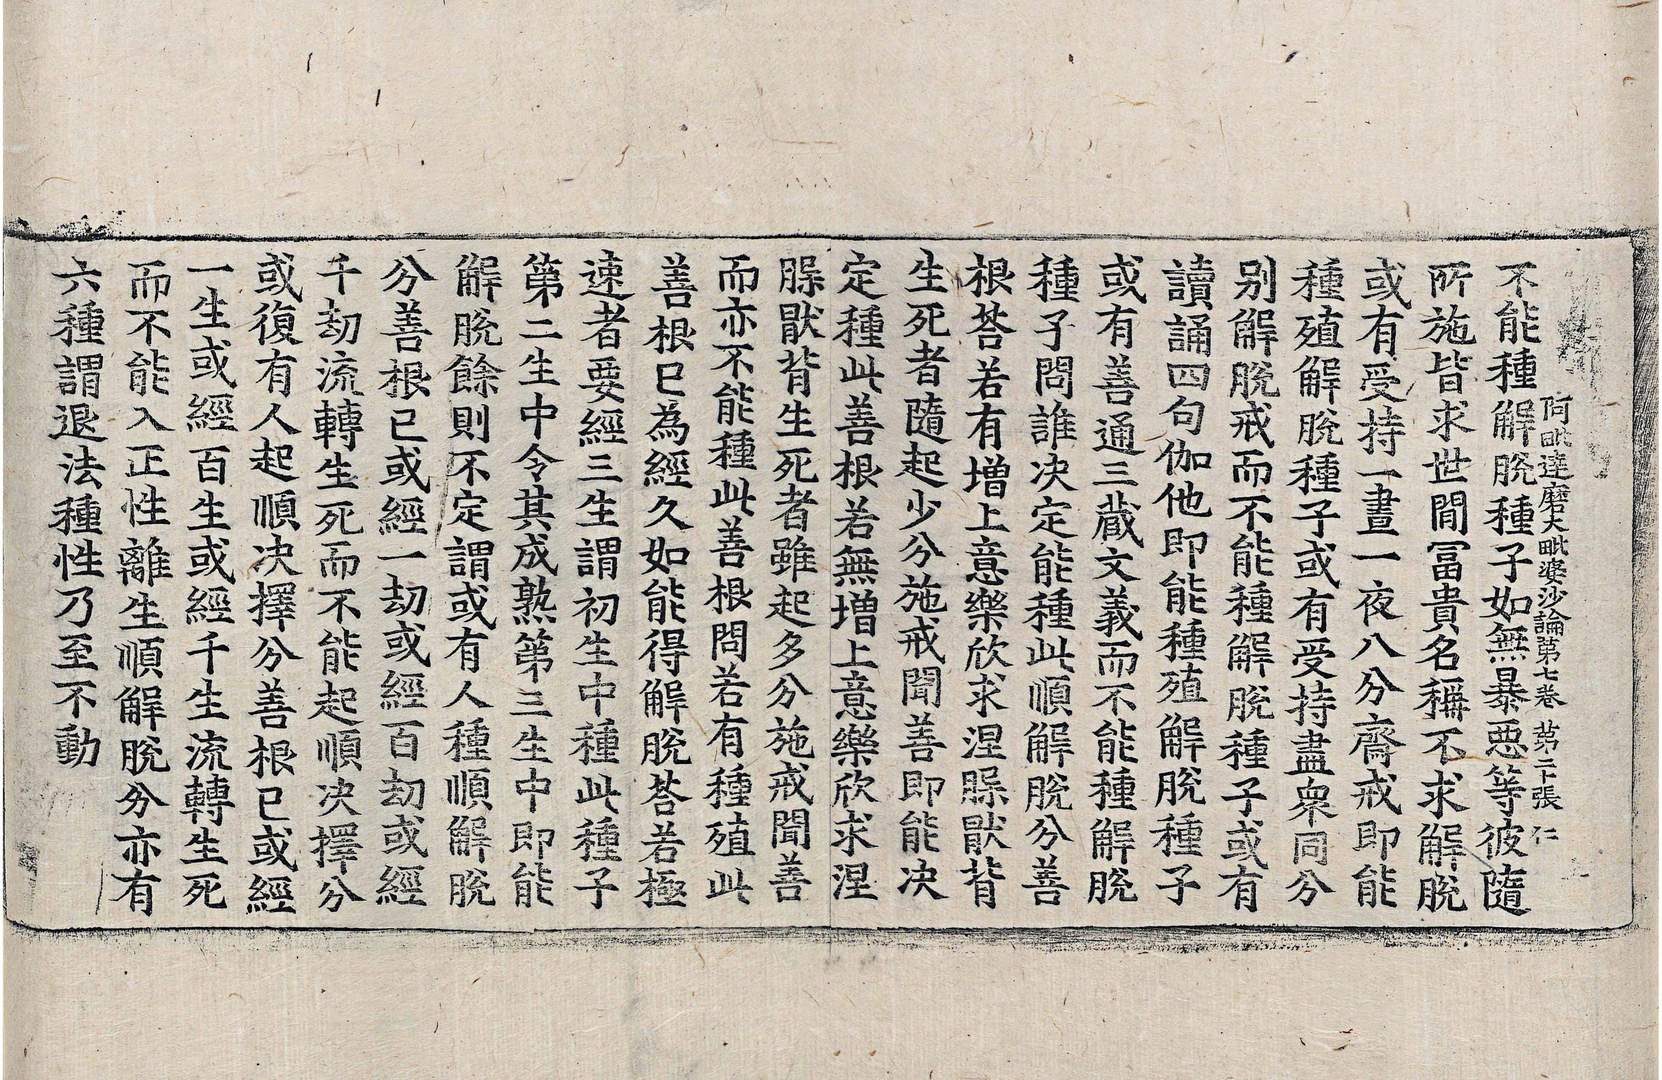 阿毗達磨大毗婆沙論第七卷 苐二十張 仁
不能種解脫種子如無暴惡等彼隨
所施皆求世間冨貴名稱不求解脫
或有受持一晝一夜八分齋戒即能
種殖解脫種子或有受持盡衆同分
別解脫戒而不能種解脫種子或有
讀誦四句伽他即能種殖解脫種子
或有善通三藏文義而不能種解脫
種子問誰决定能種此順解脫分善
根荅若有增上意樂欣求涅槃猒背
生死者隨起少分施戒聞善即能决
定種此善根若無增上意樂欣求涅
槃猒背生死者雖起多分施戒聞善
而亦不能種此善根問若有種殖此
善根已為經久如能得解脫荅若極
速者要經三生謂初生中種此種子
第二生中令其成熟第三生中即能
解脫餘則不定謂或有人種順解脫
分善根已或經一劫或經百劫或經
千劫流轉生死而不能起順决擇分
或復有人起順决擇分善根已或經
一生或經百生或經千生流轉生死
而不能入正性離生順解脫分亦有
六種謂退法種性乃至不動